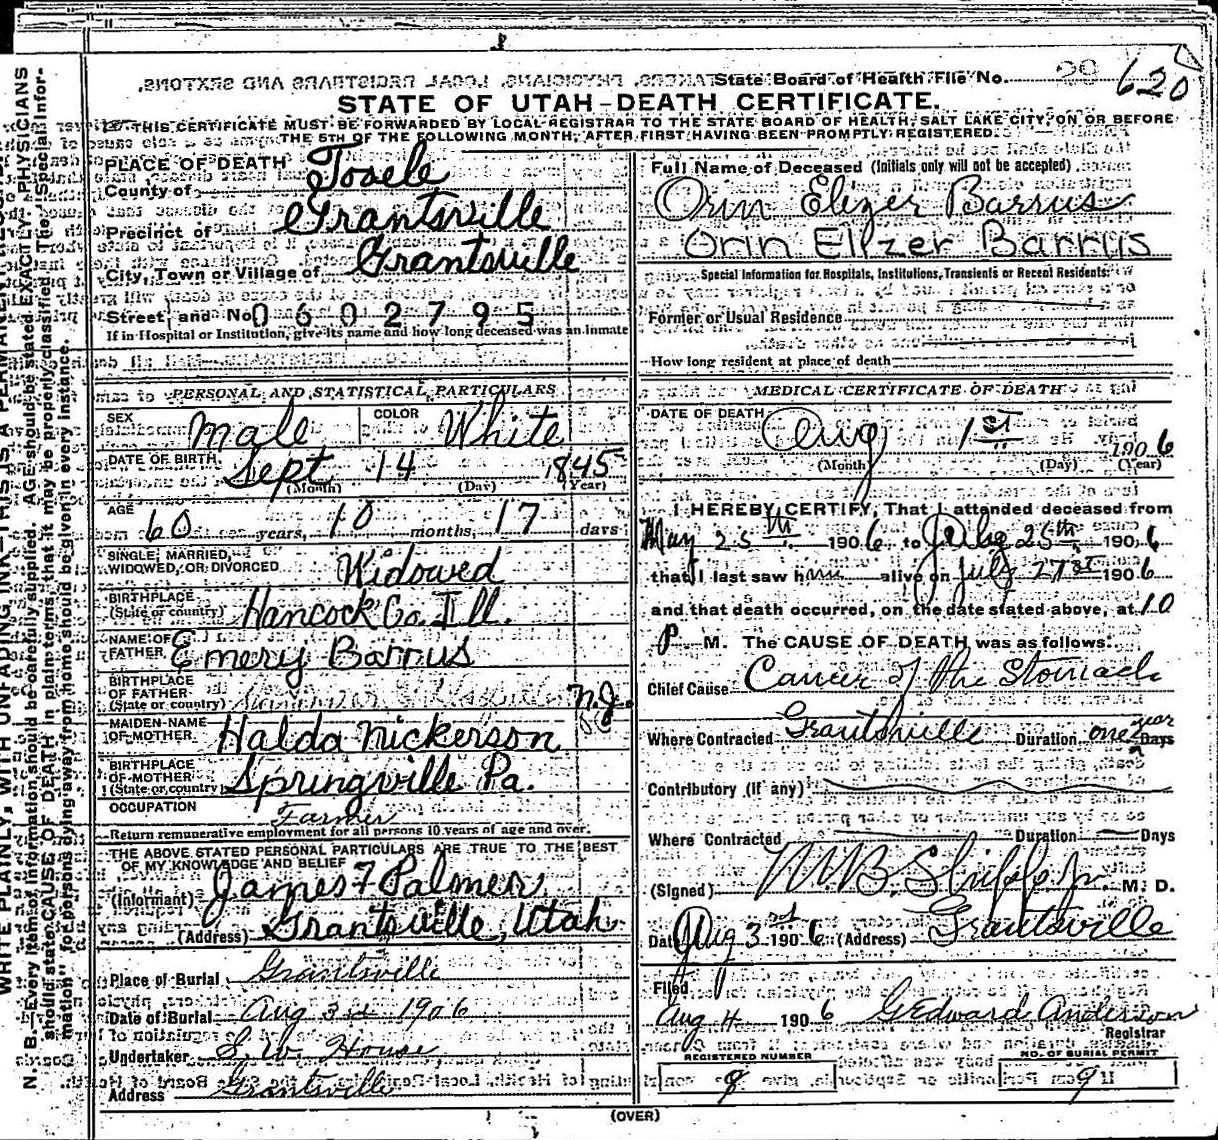 State Board of Health File No. 620
STATE OF UTAH-DEATH CERTIFICATE.
THIS CERTIFICATE MUST BE FORWARDED BY LOCAL REGISTRAR TO THE STATE BOARD OF HEALTH, SALT LAKE CITY, ON OR BEFORE
THE 5TH OF THE FOLLOWING MONTH, AFTER FIRST HAVING BEEN PROMPTLY REGISTERED.
PLACE OF DEATH
County of Tooele
Precinct of Grantsville
City, Town or Village of Grantsville
Street, and No. 0602795
If in Hospital or Institution, give its name and how long deceased was an inmate
PERSONAL AND STATISTICAL PARTICULARS
SEX Male COLOR White
DATE OF BIRTH Sept 14 1845
(Month) (Day) (Year)
AGE 60 years, 10 months, 17 days
SINGLE, MARRIED,
WIDOWED, OR DIVORCED Widowed
BIRTHPLACE
(State or country) Hancock Co. Ill.
NAME OF
FATHER Emery Barrus
BIRTHPLACE
OF FATHER
(State or country) N.Y.
MAIDEN NAME
OF MOTHER Halda Nickerson
BIRTHPLACE
OF MOTHER
(State or country) Springville Pa.
OCCUPATION Farmer
Return remunerative employment for all persons 10 years of age and over.
THE ABOVE STATED PERSONAL PARTICULARS ARE TRUE TO THE BEST
OF MY KNOWLEDGE AND BELIEF
(Informant) James F Palmer
(Address) Grantsville, Utah
Place of Burial Grantsville
Date of Burial Aug 3rd 1906
Undertaker S. W. House
Address Grantsville
Full Name of Deceased (Initials only will not be accepted)
Orin Elizer Barrus
Orin Elizer Barrus
Special Information for Hospitals, Institutions, Transients or Recent Residents.
Former or Usual Residence
How long resident at place of death
MEDICAL CERTIFICATE OF DEATH
DATE OF DEATH
Aug 1st 1906
(Month) (Day) (Year)
I HEREBY CERTIFY, That I attended deceased from
May 25th 1906, to July 25th 1906
that I last saw him alive on July 27st 1906
and that death occurred, on the date stated above, at 10
P M. The CAUSE OF DEATH was as follows:
Chief Cause Cancer of the Stomach
Where Contracted Grantsville Duration one year Days
Contributory (if any)
Where Contracted Duration Days
(Signed) M. D.
Date Aug 3rd 1906 (Address) Grantsville
Filed
Aug 4 1906 G Edward Anderson
Registrar
REGISTERED NUMBER
9
NO. OF BURIAL PERMIT
9
(OVER)
WRITE PLAINLY, WITH UNFADING INK—THIS IS A PERMANENT
N. B.—Every item of information should be carefully supplied. AGE should be stated EXACTLY. PHYSICIANS
should state CAUSE OF DEATH in plain terms, that it may be properly classified. The "Special Infor-
mation" for persons dying away from home should be given in every instance.